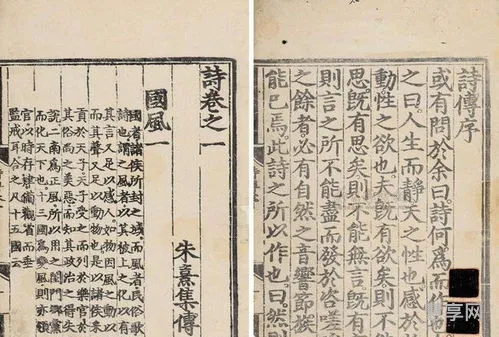 詩傳序
或有問於余曰詩何為而作也
之曰人生而靜天之性也感於
動性之欲也夫既有欲矣則不
思既有思矣則不能無言既有
則言之所不能盡而發於咨嗟
之餘者必有自然之音響節族
能已焉此詩之所以作也曰然
詩卷之一
朱熹集傳
國風一
國者諸侯所封之域而風者民俗歌
詩也謂之風者以其被上之化以有
其言又足以感人如物因風之動以
而其聲又足以動物也是以諸侯采
貢於天子天子受之而列於樂官於
其俗尚之美惡而知其政治之得失
說二南為正風所以用之閨門鄉黨
而化天下也十三國為變風則亦領
官以時存肄備觀省而垂
監戒耳合之凡十五國云
享网